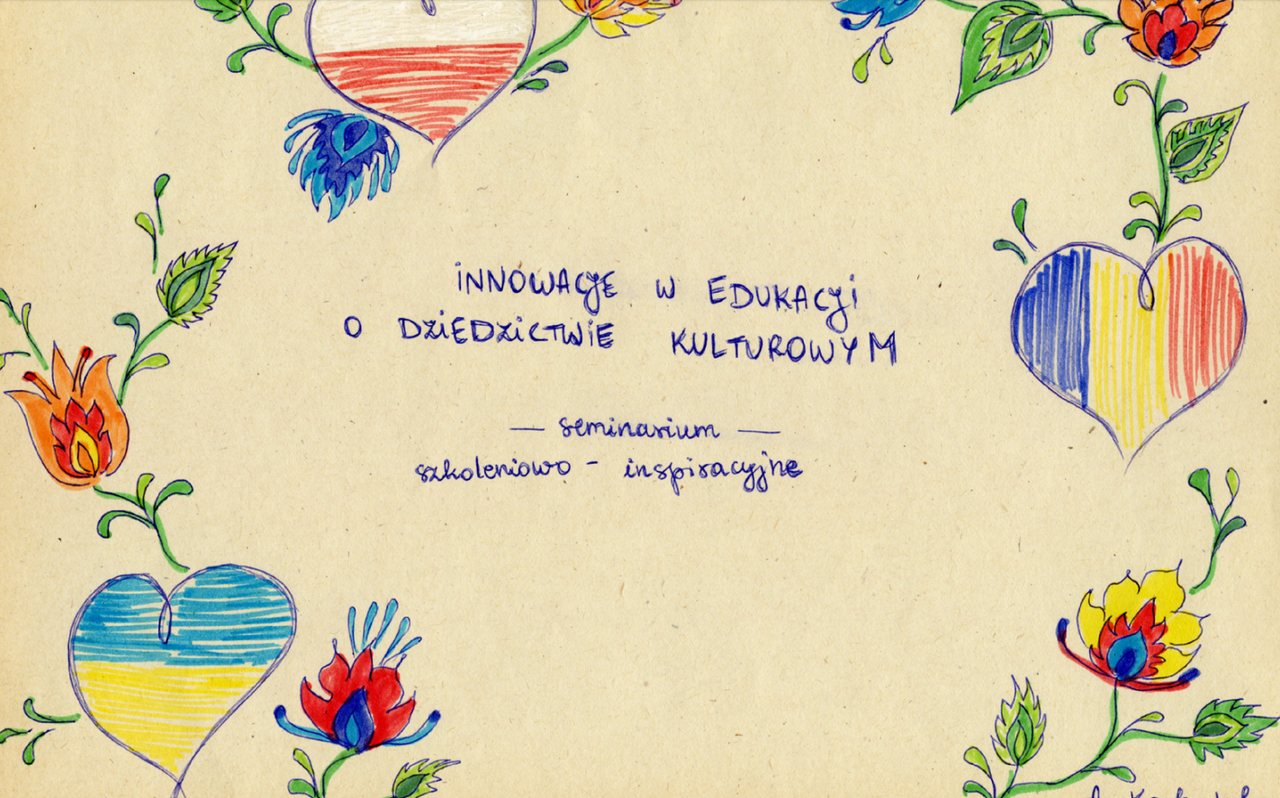 iNNOWACJE W EDUKACJi
O DZiEDZiCTWiE KULTUROWYM
— seminarium —
szkoleniowo - inspiracyjne